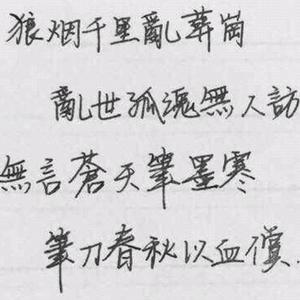 狼烟千里亂葬崗
亂世孤魂無人訪
無言蒼天筆墨寒
筆刀春秋以血償